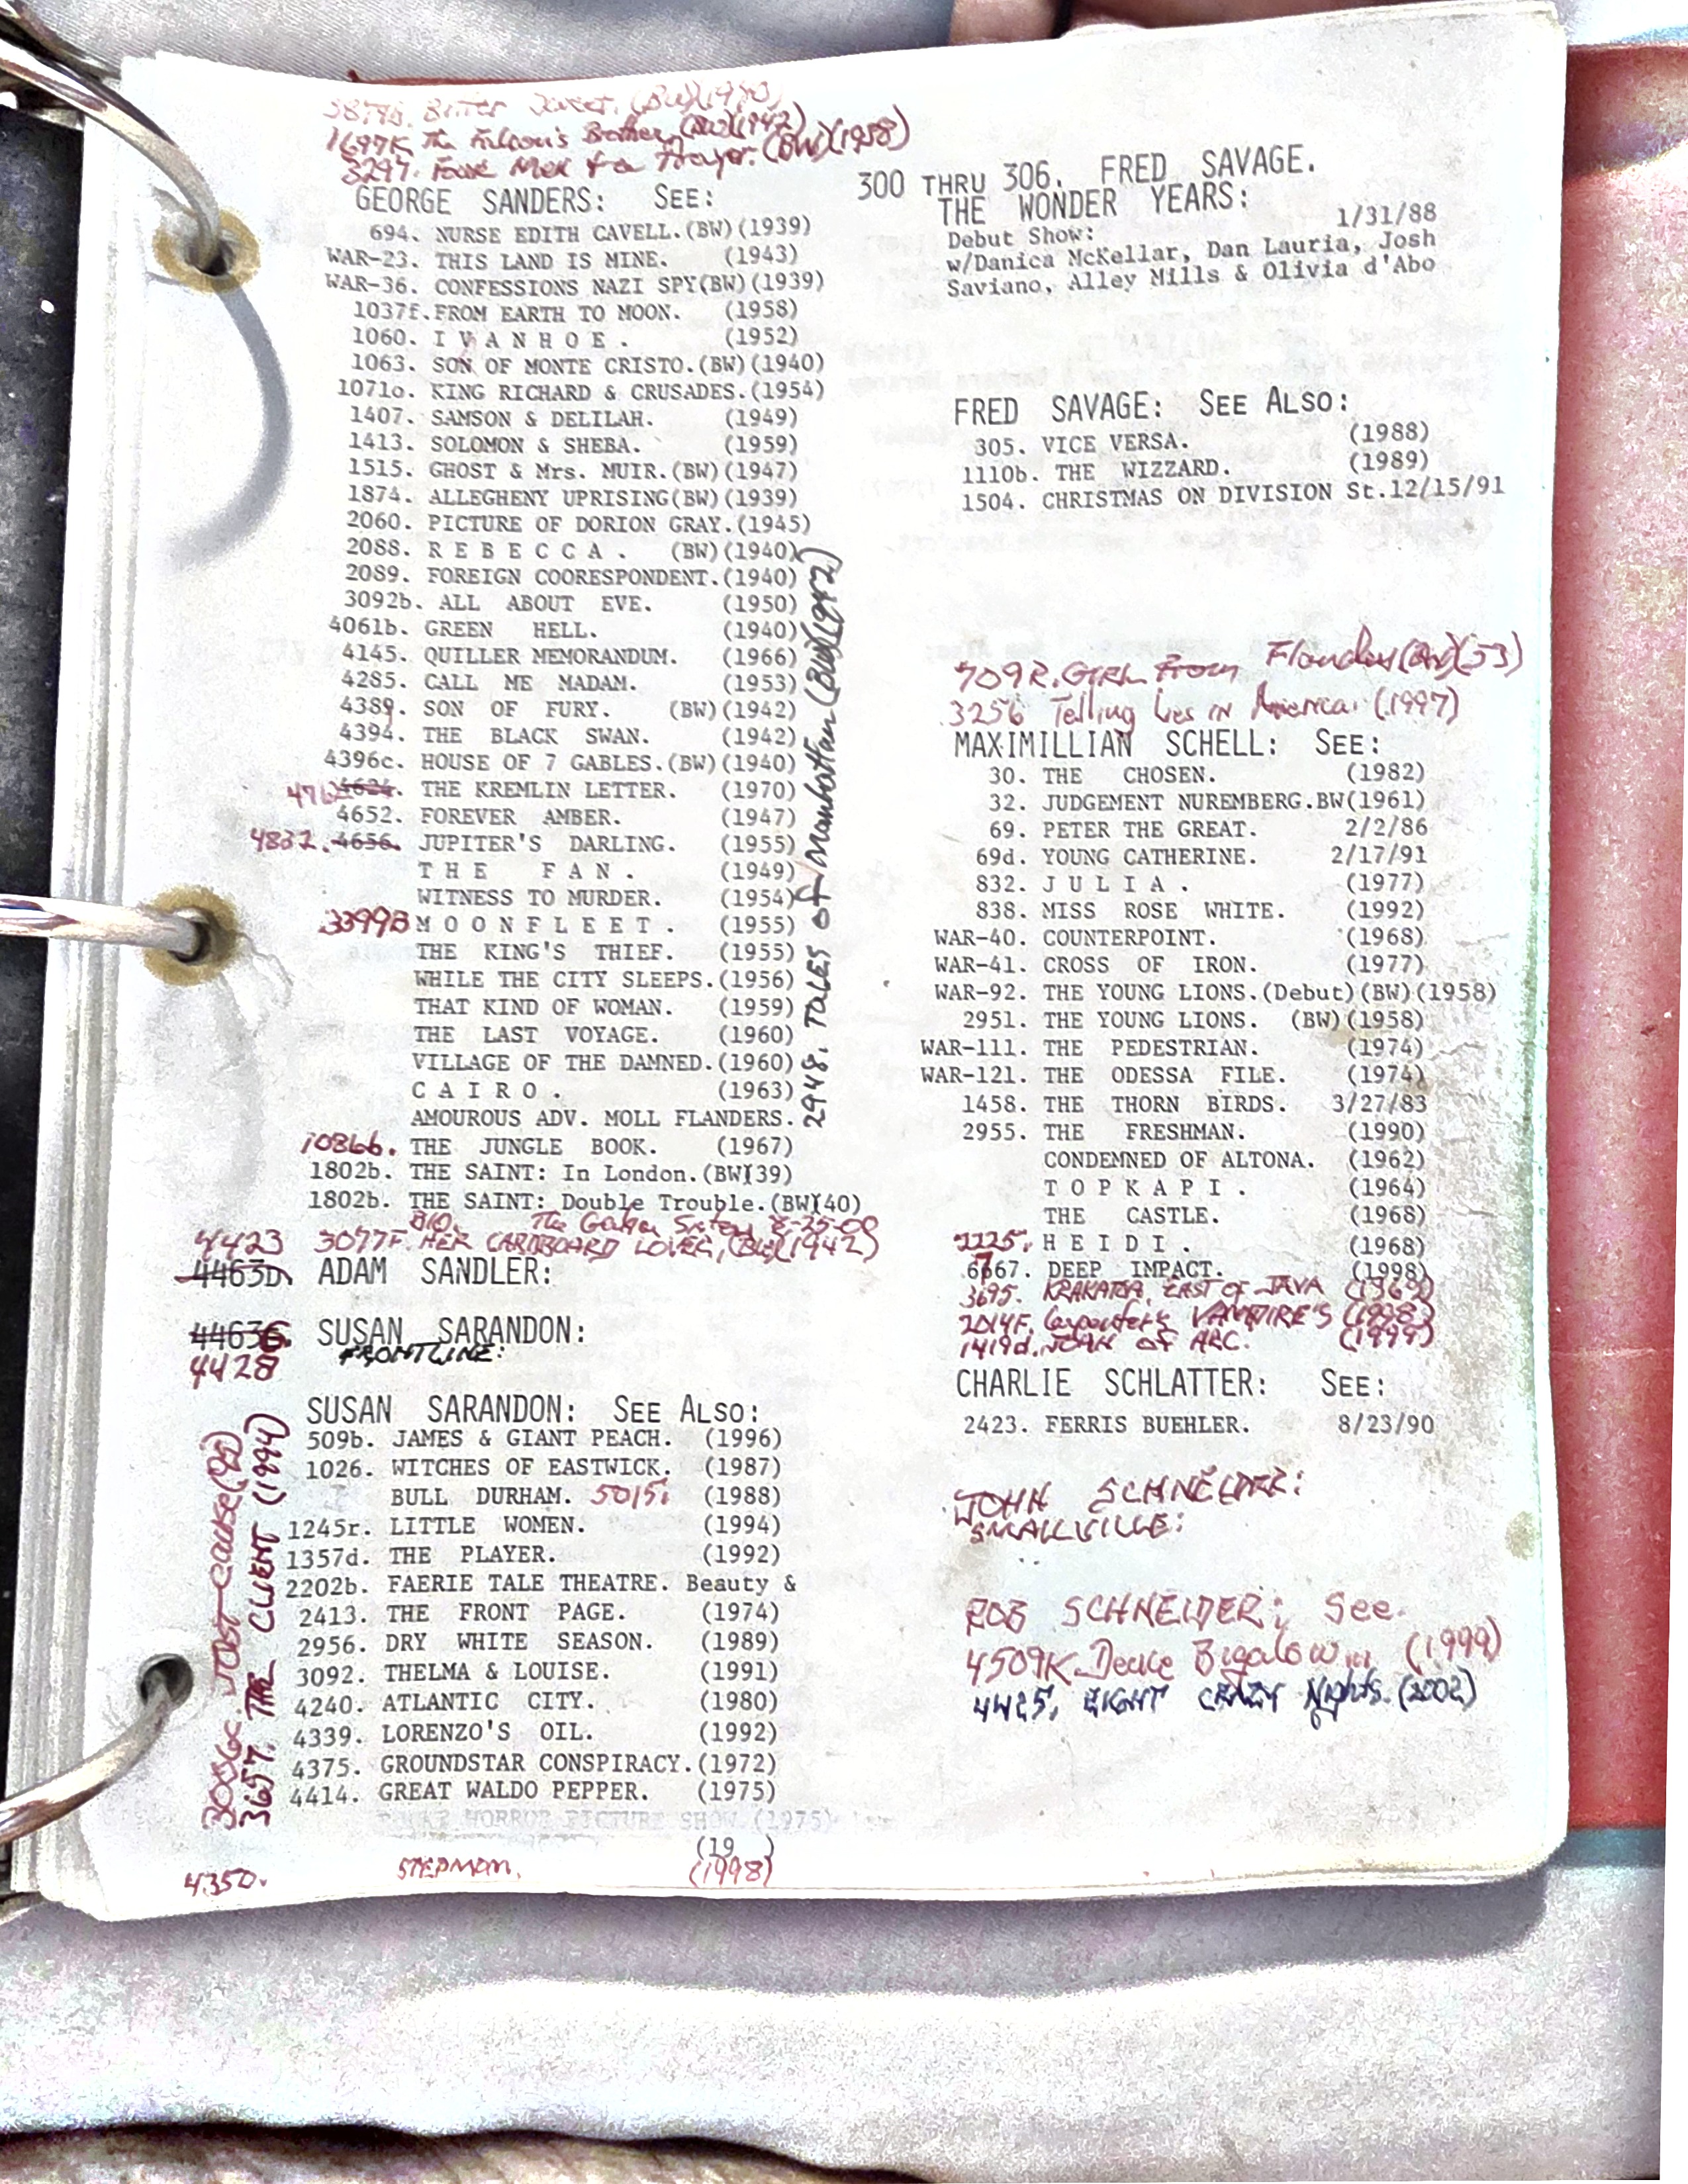 3879B. Bitter Sweet. (BW)(1940)
1697K The Falcon's Brother, (BW)(1942)
3297. Four Men & a Prayer. (BW)(1938)
GEORGE SANDERS: SEE:
694. NURSE EDITH CAVELL.(BW)(1939)
WAR-23. THIS LAND IS MINE. (1943)
WAR-36. CONFESSIONS NAZI SPY(BW)(1939)
1037f.FROM EARTH TO MOON. (1958)
1060. I V A N H O E . (1952)
1063. SON OF MONTE CRISTO.(BW)(1940)
1071o. KING RICHARD & CRUSADES.(1954)
1407. SAMSON & DELILAH. (1949)
1413. SOLOMON & SHEBA. (1959)
1515. GHOST & Mrs. MUIR.(BW)(1947)
1874. ALLEGHENY UPRISING(BW)(1939)
2060. PICTURE OF DORION GRAY.(1945)
2088. R E B E C C A . (BW)(1940)
2089. FOREIGN COORESPONDENT.(1940)
3092b. ALL ABOUT EVE. (1950)
4061b. GREEN HELL. (1940)
4145. QUILLER MEMORANDUM. (1966)
4285. CALL ME MADAM. (1953)
4389. SON OF FURY. (BW)(1942)
4394. THE BLACK SWAN. (1942)
4396c. HOUSE OF 7 GABLES.(BW)(1940)
4624. THE KREMLIN LETTER. (1970)
4652. FOREVER AMBER. (1947)
4832. 4656. JUPITER'S DARLING. (1955)
T H E F A N . (1949)
WITNESS TO MURDER. (1954)
3399B M O O N F L E E T . (1955)
THE KING'S THIEF. (1955)
WHILE THE CITY SLEEPS.(1956)
THAT KIND OF WOMAN. (1959)
THE LAST VOYAGE. (1960)
VILLAGE OF THE DAMNED.(1960)
C A I R O . (1963)
AMOUROUS ADV. MOLL FLANDERS.
1086b. THE JUNGLE BOOK. (1967)
1802b. THE SAINT: In London.(BW)(39)
1802b. THE SAINT: Double Trouble.(BW)(40)
BIO. The Gabor Sisters 8-25-00
3077F. HER CARDBOARD LOVER, (BW)(1942)
2948. TALES of Manhattan (BW)(1942)
4423
4463D. ADAM SANDLER:
4463C. SUSAN SARANDON:
4428 FRONTLINE:
SUSAN SARANDON: SEE ALSO:
509b. JAMES & GIANT PEACH. (1996)
1026. WITCHES OF EASTWICK. (1987)
BULL DURHAM. 5015. (1988)
1245r. LITTLE WOMEN. (1994)
1357d. THE PLAYER. (1992)
2202b. FAERIE TALE THEATRE. Beauty &
2413. THE FRONT PAGE. (1974)
2956. DRY WHITE SEASON. (1989)
3092. THELMA & LOUISE. (1991)
4240. ATLANTIC CITY. (1980)
4339. LORENZO'S OIL. (1992)
4375. GROUNDSTAR CONSPIRACY.(1972)
4414. GREAT WALDO PEPPER. (1975)
HORROR PICTURE SHOW.(1975)
(19 )
4350. STEPMOM. (1998)
3006c. JUST Cause(95)
3657. THE CLIENT (1994)
300 THRU 306. FRED SAVAGE.
THE WONDER YEARS:
Debut Show: 1/31/88
w/Danica McKellar, Dan Lauria, Josh
Saviano, Alley Mills & Olivia d'Abo
FRED SAVAGE: SEE ALSO:
305. VICE VERSA. (1988)
1110b. THE WIZZARD. (1989)
1504. CHRISTMAS ON DIVISION St.12/15/91
709R. GIRL From Flanders(BW)(53)
3256 Telling Lies in America. (1997)
MAXIMILLIAN SCHELL: SEE:
30. THE CHOSEN. (1982)
32. JUDGEMENT NUREMBERG.BW(1961)
69. PETER THE GREAT. 2/2/86
69d. YOUNG CATHERINE. 2/17/91
832. J U L I A . (1977)
838. MISS ROSE WHITE. (1992)
WAR-40. COUNTERPOINT. (1968)
WAR-41. CROSS OF IRON. (1977)
WAR-92. THE YOUNG LIONS.(Debut)(BW)(1958)
2951. THE YOUNG LIONS. (BW)(1958)
WAR-111. THE PEDESTRIAN. (1974)
WAR-121. THE ODESSA FILE. (1974)
1458. THE THORN BIRDS. 3/27/83
2955. THE FRESHMAN. (1990)
CONDEMNED OF ALTONA. (1962)
T O P K A P I . (1964)
THE CASTLE. (1968)
2225. H E I D I . (1968)
6667. DEEP IMPACT. (1998)
3695. KRAKATOA, EAST OF JAVA (1969)
2014F. Carpenter's VAMPIRE'S (1998)
1419d. JOAN of ARC. (1999)
CHARLIE SCHLATTER: SEE:
2423. FERRIS BUEHLER. 8/23/90
JOHN SCHNEIDER:
SMALLVILLE:
ROB SCHNEIDER: See
4509K Deuce Bigalow (1999)
4425. EIGHT CRAZY Nights. (2002)